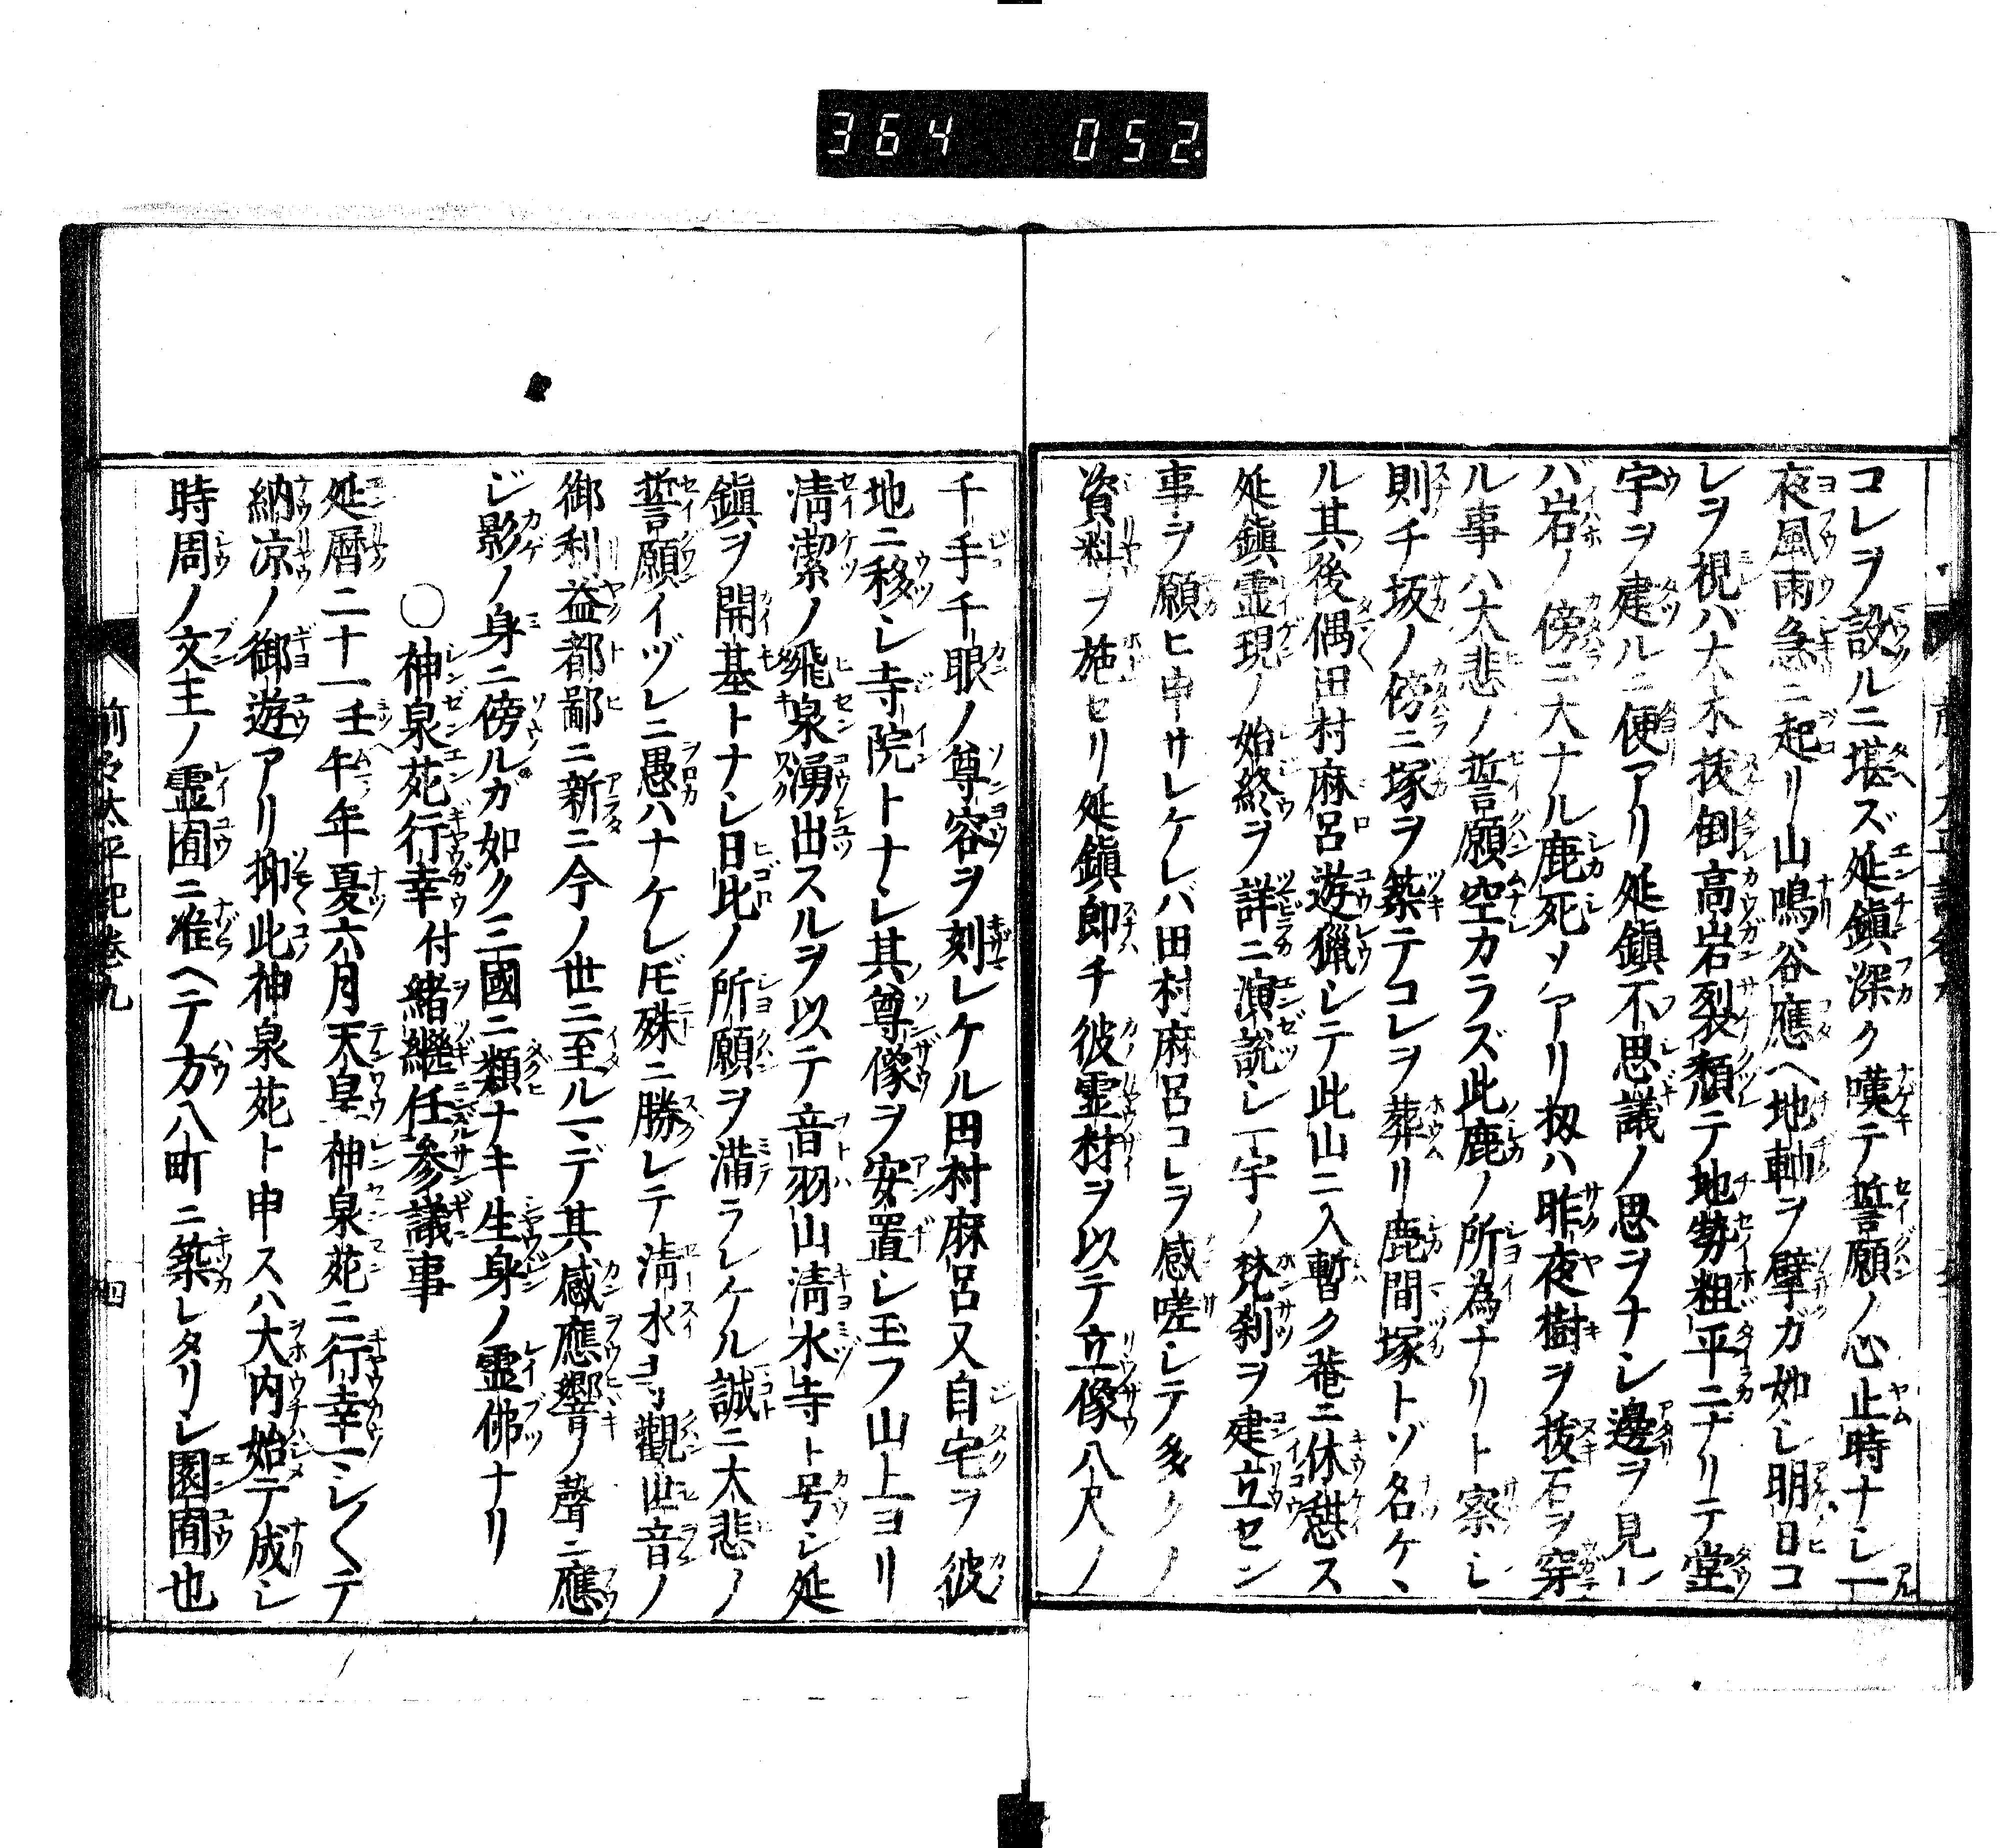 364 052
コレヲ設ルニ堪ズ延鎮深ク嘆テ誓願ノ心止時ナシ一
夜風雨急ニ起リ山鳴谷應ヘ地軸ヲ擘ガ如シ明日コ
レヲ梘バ大木抜倒高岩裂頽テ地勢粗平ニナリテ堂
宇ヲ建ルニ便アリ延鎮不思議ノ思ヲナシ邊ヲ見レ
バ岩ノ傍ニ大ナル鹿死ソアリ扨ハ昨夜樹ヲ抜石ヲ穿
ル事ハ大悲ノ誓願空カラズ此鹿ノ所為ナリト察シ
則チ坂ノ傍ニ塚ヲ築テコレヲ葬リ鹿間塚トゾ名ケヽ
ル其後偶田村麻呂遊猟シテ此山ニ入暫ク菴ニ休憇ス
延鎮霊現ノ始終ヲ詳ニ演説シ一宇ノ梵刹ヲ建立セン
事ヲ願ヒ申サレケレバ田村麻呂コレヲ感嗟シテ多クノ
資料ヲ施セリ延鎮即チ彼霊材ヲ以テ立像八尺ノ
千手千眼ノ尊容ヲ刻レケル田村麻呂又自宅ヲ彼
地ニ移シ寺院トナシ其尊像ヲ安置シ玉フ山上ヨリ
清潔ノ飛泉湧出スルヲ以テ音羽山清水寺ト号シ延
鎮ヲ開基トナシ日比ノ所願ヲ満ラレケル誠ニ大悲ノ
誓願イヅレニ愚ハナケレ𪜈殊ニ勝レテ清水ヨリ觀世音ノ
御利益都鄙ニ新ニ今ノ世ニ至ルマデ其感應響ノ聲ニ應
ジ影ノ身ニ傍ルガ如ク三國ニ類ナキ生身ノ霊佛ナリ
〇神泉苑行幸付緒継任参議事
延暦二十一壬午年夏六月天皇神泉苑ニ行幸マシ〱テ
納凉ノ御遊アリ抑此神泉苑ト申スハ大内始テ成シ
時周ノ文王ノ霊囿ニ准ヘテ方八町ニ築レタリシ園囿也
前々太平記巻九
四